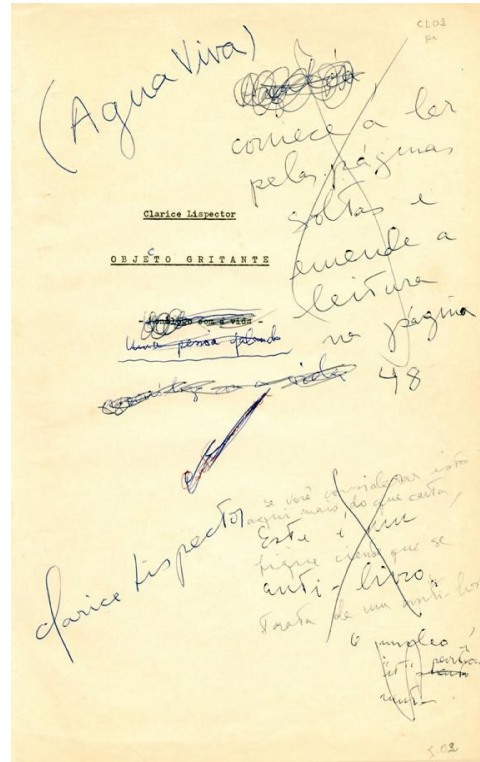 CL01
pi
(Agua Viva)
comece a ler
pelas páginas
soltas e
emende a
leitura
na página
48
Clarice Lispector
OBJETO GRITANTE
c
- Monólogo com a vida -
Uma pessoa falando
a vida
Clarice Lispector
se você considerar isto
aqui mais do que carta,
Este é um
fique ciente que se
anti-livro.
trata de um anti-livro
O núcleo é
5.02